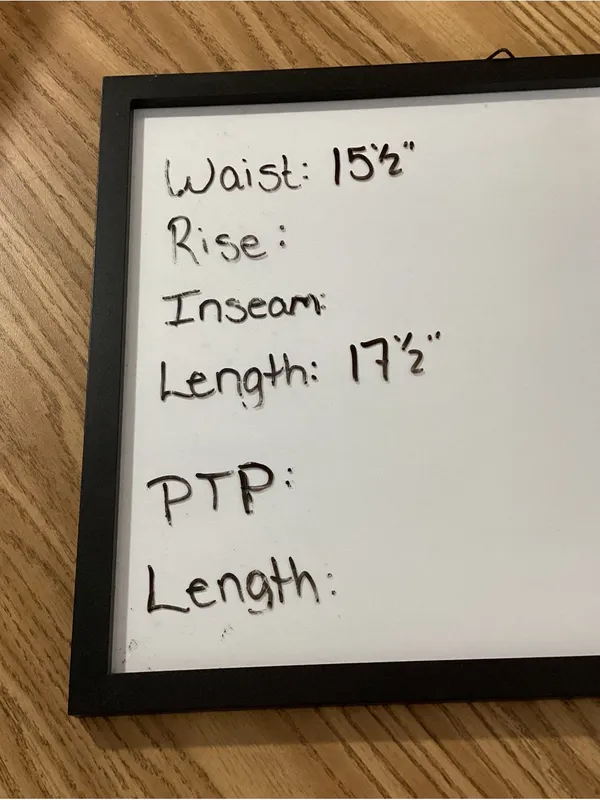 Waist: 15½"
Rise:
Inseam:
Length: 17½"
PTP:
Length: